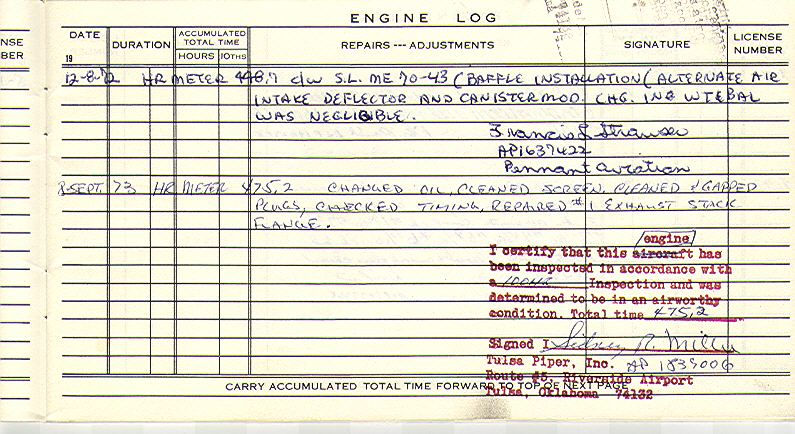 ENGINE LOG
NSE
BER
DATE
19
DURATION
ACCUMULATED
TOTAL TIME
HOURS 10THS
REPAIRS --- ADJUSTMENTS
SIGNATURE
LICENSE
NUMBER
12-8-72 HR METER 448.7 C/W S.L. ME 70-43 (BAFFLE INSTALLATION ( ALTERNATE AIR
INTAKE DEFLECTOR AND CANISTER MOD. CHG. IN WTEBAL
WAS NEGLIBIBLE.
Francis L Strauser
AP1637422
Pennant Aviation
8 SEPT. 73 HR METER 475.2 CHANGED OIL, CLEANED SCREEN, CLEANED & GAPPED
PLUGS, CHECKED TIMING, REPAIRED #1 EXHAUST STACK
FLANGE.
engine
I certify that this aircraft has
been inspected in accordance with
a 100HR Inspection and was
determined to be in an airworthy
condition. Total time 475.2
Signed Sidney R. Miller
Tulsa Piper, Inc. AP 1839006
Route #5, Riverside Airport
Tulsa, Oklahoma 74132
CARRY ACCUMULATED TOTAL TIME FORWARD TO TOP OF NEXT PAGE